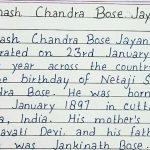 hash Chandra Bose Jay
hash Chandra Bose Jayan
rated on 23rd January
year across the countr
the birthday of Netaji S
dra Bose. He was born
January 1897 in cutt
a, India. His mother's
avati Devi. and his fath
was Jankinath Bose.